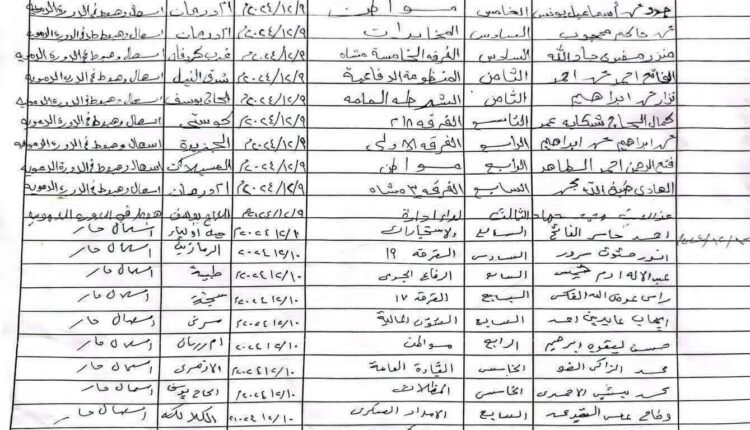 محمد اسماعيل يونس الخامس مواطن ٢٠٢٤/١٢/٩م امدرمان اسهال وهبوط في الدورة الدموية
محمد حاكم محجوب السادس المخابرات ٢٠٢٤/١٢/٩م امدرمان اسهال وهبوط في الدورة الدموية
منزر جاد الله السادس الفرقه الخامسة مشاه ٢٠٢٤/١٢/٩م غرب كردفان اسهال وهبوط في الدورة الدموية
الفاتح احمد محمد احمد الثامن المنظومة الدفاعية ٢٠٢٤/١٢/٩م شرق النيل اسهال وهبوط في الدورة الدموية
نزار محمد ابراهيم الثامن الشرطه العامه ٢٠٢٤/١٢/٩م الحاج يوسف اسهال وهبوط في الدورة الدموية
كمال الحاج عمر التاسع الفرقه ٢١٨ ٢٠٢٤/١٢/٩م كوستي اسهال وهبوط في الدورة الدموية
محمد ابراهيم محمد ابراهيم الرابع الفرقه الاولى ٢٠٢٤/١٢/٩م الجزيرة اسهال وهبوط في الدورة الدموية
فتح الرحمن احمد الطاهر الرابع مواطن ٢٠٢٤/١٢/٩م العسيلات اسهال وهبوط في الدورة الدموية
الهادي ضيف الله محمد السابع الفرقه ٣ مشاه ٢٠٢٤/١٢/٩م امدرمان اسهال وهبوط في الدورة الدموية
الثالث ادارة ٢٠٢٤/١٢/٩م الحاج يوسف هبوط في الدورة الدموية
احمد جاسر الفاتح السابع الاستخبارات ٢٠٢٤/١٢/١٠م جبل اولياء اسهال حار
انور سرور السادس الفرقه ١٩ ٢٠٢٤/١٢/١٠م الرمازين اسهال حار
عبدالاله ادم خميس السابع الدفاع الجوي ٢٠٢٤/١٢/١٠م طيبة اسهال حار
عوض الله السابع الفرقه ١٧ ٢٠٢٤/١٢/١٠م سنجة اسهال حار
ايهاب عابدين احمد السابع الشئون المالية ٢٠٢٤/١٢/١٠م اسهال حار
حسن ابراهيم الرابع مواطن ٢٠٢٤/١٢/١٠م ام درمان اسهال حار
محمد الزاكي الضو الخامس القيادة العامة ٢٠٢٤/١٢/١٠م الازهري اسهال حار
محمد الخامس المظلات ٢٠٢٤/١٢/١٠م الحاج يوسف اسهال حار
عباس السابع الامداد العسكري ٢٠٢٤/١٢/١٠م الكلاكلة اسهال حار